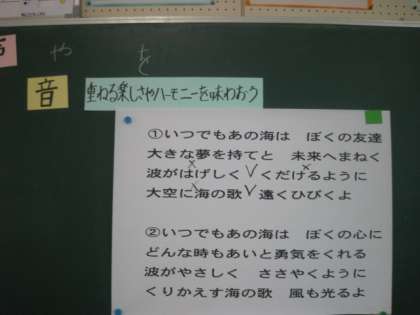 や を
音
重ねる楽しさやハーモニーを味わおう
①いつでもあの海は ぼくの友達
大きな夢を持てと 未来へまねく
波がはげしく くだけるように
大空に海の歌 遠くひびくよ
②いつでもあの海は ぼくの心に
どんな時もあいと勇気をくれる
波がやさしく ささやくように
くりかえす海の歌 風も光るよ